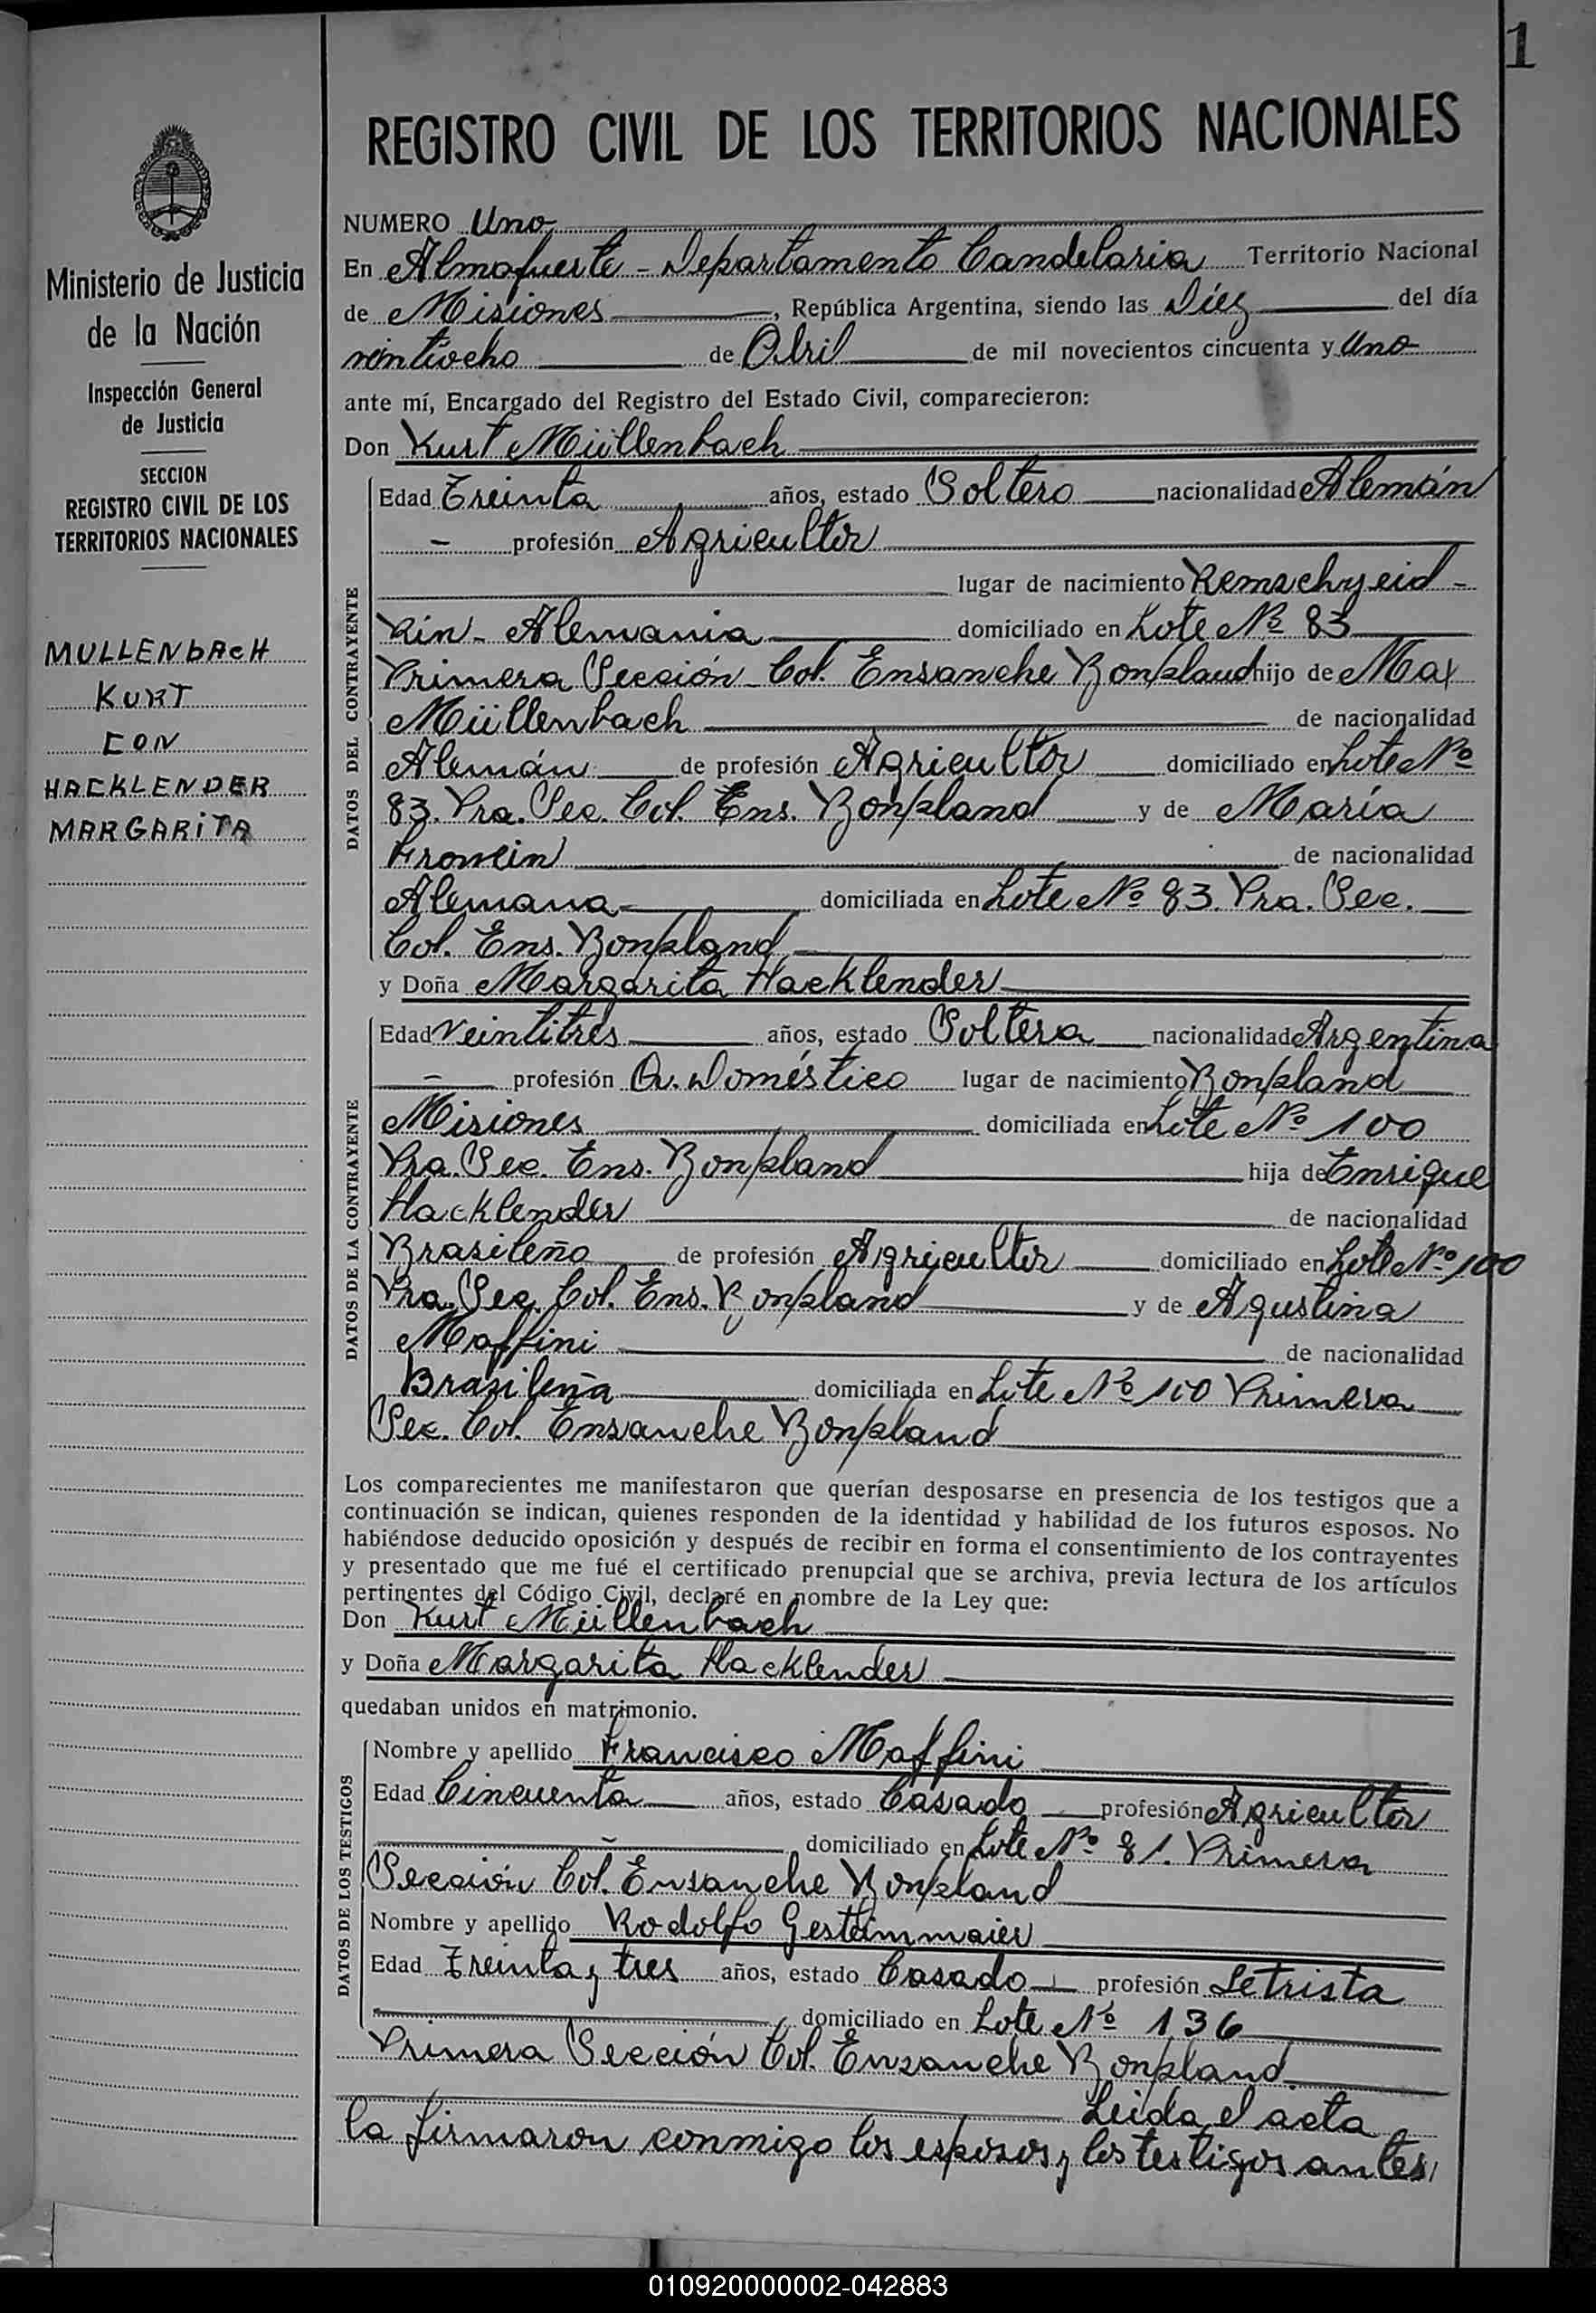 1
REGISTRO CIVIL DE LOS TERRITORIOS NACIONALES
Ministerio de Justicia
de la Nación
Inspección General
de Justicia
SECCION
REGISTRO CIVIL DE LOS
TERRITORIOS NACIONALES
MULLENbAcH
KURT
CON
HACKLENDER
MARGARiTA
NUMERO Uno
En Almafuerte - Departamento Candelaria Territorio Nacional
de Misiones, República Argentina, siendo las Diez del día
veintiocho de Abril de mil novecientos cincuenta y Uno
ante mí, Encargado del Registro del Estado Civil, comparecieron:
Don Kurt Müllenbach
DATOS DEL CONTRAYENTE
Edad Treinta años, estado Soltero nacionalidad Alemán
- profesión Agricultor
lugar de nacimiento Remschyeid -
Rin - Alemania domiciliado en Lote Nº 83
Primera Sección - Col. Ensanche Bonpland hijo de Max
Müllenbach de nacionalidad
Alemán de profesión Agricultor domiciliado en Lote Nº
83. Pra. Sec. Col. Ens. Bonpland y de María
Fromein de nacionalidad
Alemana domiciliada en Lote Nº 83. Pra. Sec.
Col. Ens. Bonpland
y Doña Margarita Hacklender
DATOS DE LA CONTRAYENTE
Edad Veintitrés años, estado Soltera nacionalidad Argentina
- profesión Q. Doméstico lugar de nacimiento Bonpland
Misiones domiciliada en Lote Nº 100
Pra. Sec. Ens. Bonpland hija de Enrique
Hacklender de nacionalidad
Brasileño de profesión Agricultor domiciliado en Lote Nº 100
Pra. Sec. Col. Ens. Bonpland y de Agustina
Maffini de nacionalidad
Brasileña domiciliada en Lote Nº 100 Primera
Sec. Col. Ensanche Bonpland
Los comparecientes me manifestaron que querían desposarse en presencia de los testigos que a
continuación se indican, quienes responden de la identidad y habilidad de los futuros esposos. No
habiéndose deducido oposición y después de recibir en forma el consentimiento de los contrayentes
y presentado que me fué el certificado prenupcial que se archiva, previa lectura de los artículos
pertinentes del Código Civil, declaré en nombre de la Ley que:
Don Kurt Müllenbach
y Doña Margarita Hacklender
quedaban unidos en matrimonio.
DATOS DE LOS TESTIGOS
Nombre y apellido Francisco Maffini
Edad Cincuenta años, estado Casado profesión Agricultor
domiciliado en Lote Nº 81. Primera
Sección Col. Ensanche Bonpland
Nombre y apellido Rodolfo Gesteimmaier
Edad Treinta y tres años, estado Casado profesión Letrista
domiciliado en Lote Nº 136
Primera Sección Col. Ensanche Bonpland.
Leida el acta
la firmaron conmigo los esposos y los testigos antes
010920000002-042883